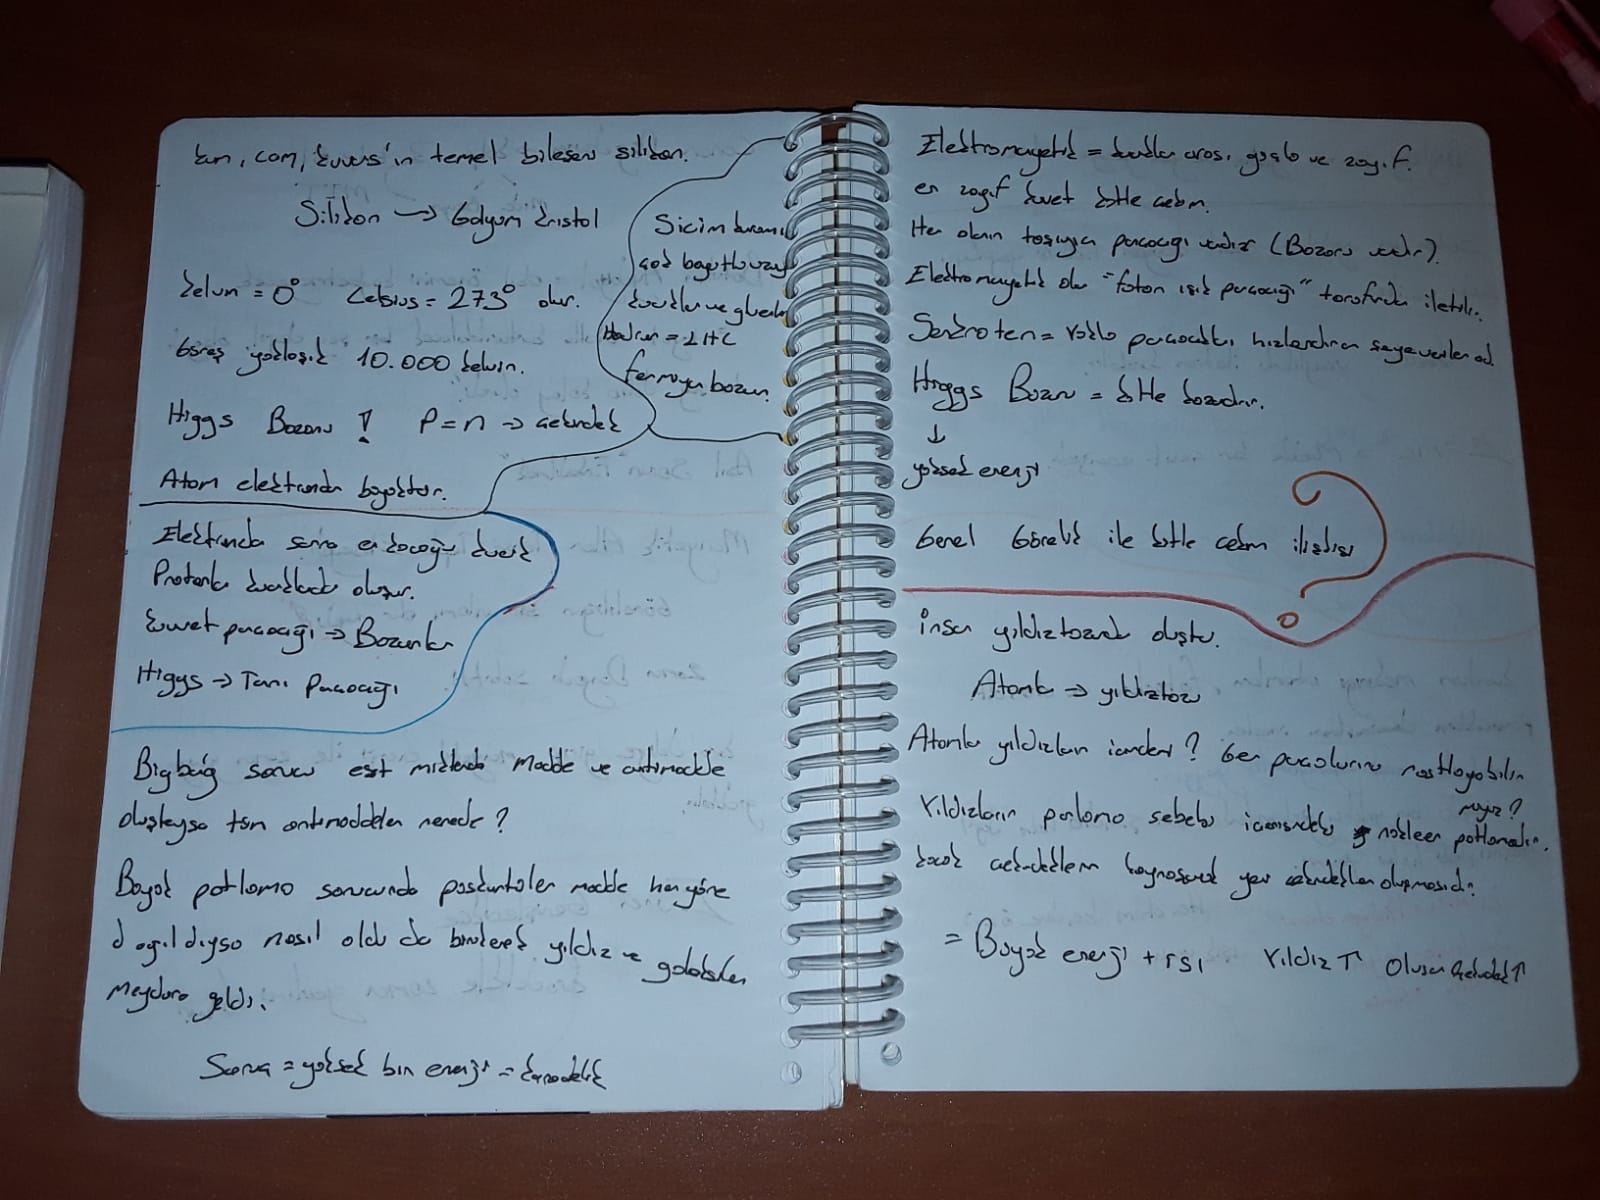 kum, cam, kuvars'ın temel bileşeni silikon.
Silikon → Galyum kristal
kelvin = 0° Celsius = 273° olur.
Güneş yaklaşık 10.000 kelvin.
Higgs Bozonu ! P = n → çekirdek
Atom elektrondan büyüktür.
Sicim kuramı
çok boyutlu uzay
kuarklar ve gluonlar
Hadron = LHC
fermiyon bozon
Elektrondan sonra en küçüğü kuark
Protonlar kuarklardan oluşur.
kuvvet parçacığı → Bozonlar
Higgs → Tanrı Parçacığı
Bigbang sonucu eşit miktarda madde ve antimadde
oluştuysa tüm antimaddeler nerede?
Büyük patlama sonucunda püskürtülen madde her yöne
dağıldıysa nasıl oldu da birikerek yıldız ve galaksiler
meydana geldi.
Sonra = yüksek bin enerji = karadelik
Elektromanyetik = kuarklar arası, güçlü ve zayıf.
en zayıf kuvvet kütle çekim.
Her alanın taşıyıcı parçacığı vardır (Bozonu vardır).
Elektromanyetik alan "foton ışık parçacığı" tarafından iletilir.
Senkroton = yüklü parçacıkları hızlandıran
Higgs Bozonu = kütle kazandırır.
↓
yüksek enerji
Genel Görelik ile kütle çekim ilişkisi ?
insan yıldıztozundan oluştu.
Atomlar → yıldıztozu
Atomlar yıldızların içinden? Geri parçalarına rastlayabilir
miyiz?
Yıldızların parlama sebebi içerisindeki nükleer patlamalar.
küçük çekirdeklerin kaynaşarak yeni çekirdekler oluşmasıdır.
= Büyük enerji + ısı Yıldız ↑ Oluşan çekirdek ↑